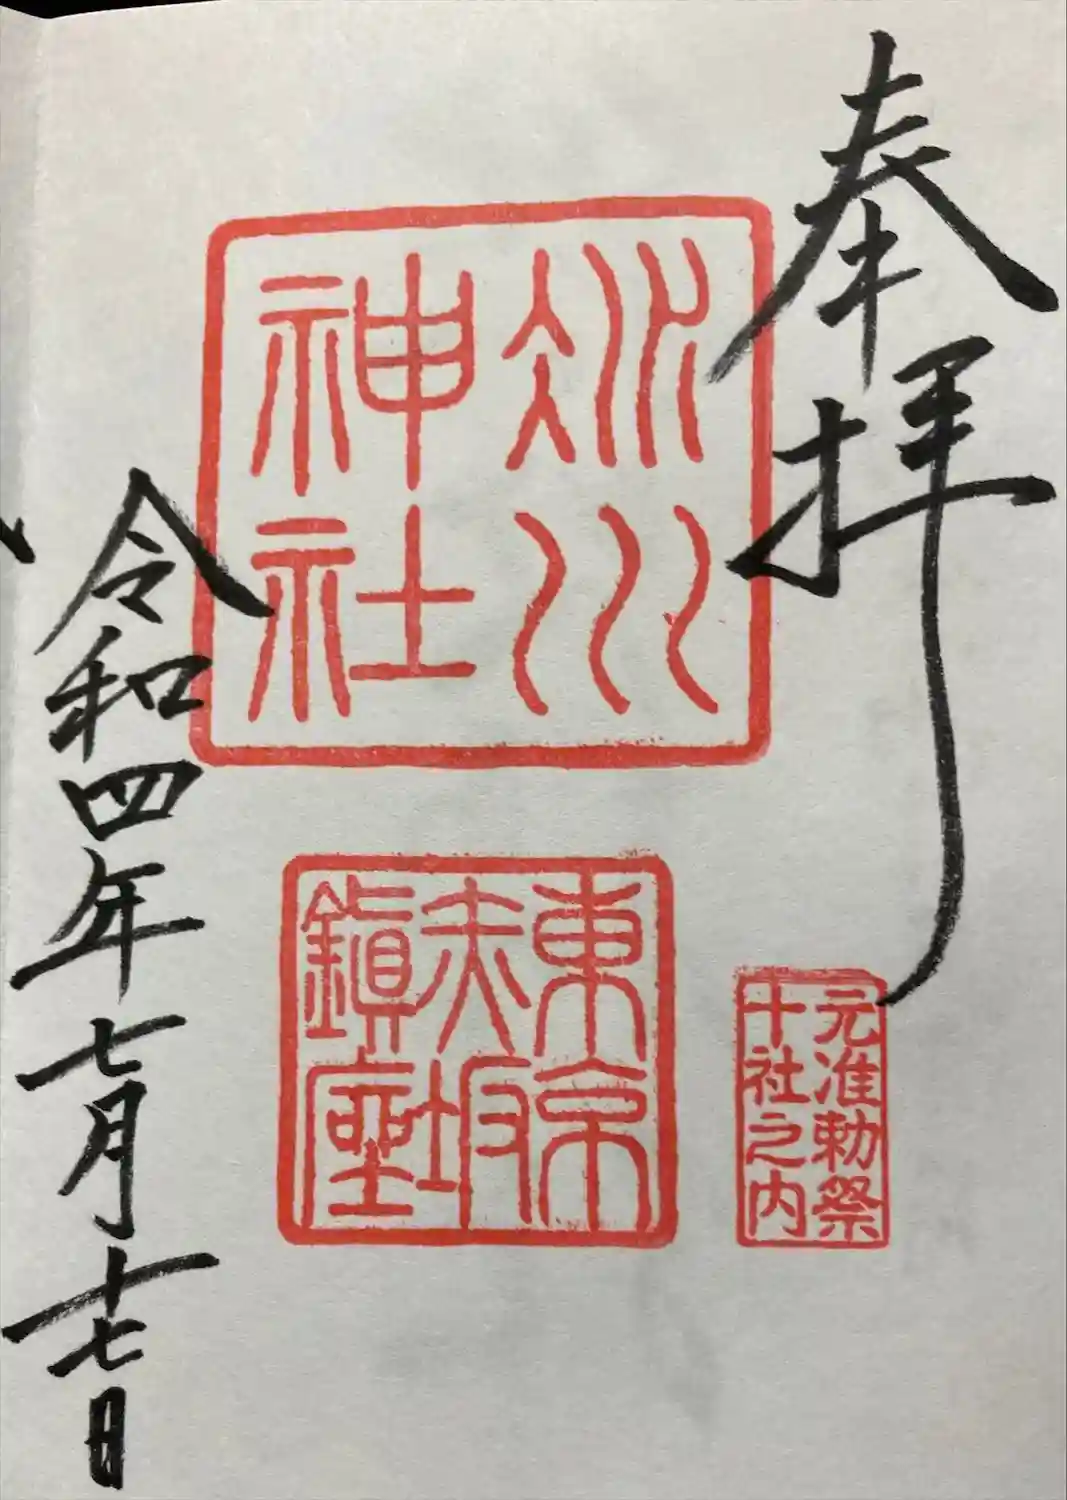 奉拝
氷川
神社
元准勅祭
十社之内
東京
赤坂
鎮座
令和四年七月十七日